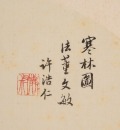 寒林圖
法董文敏
許浩仁